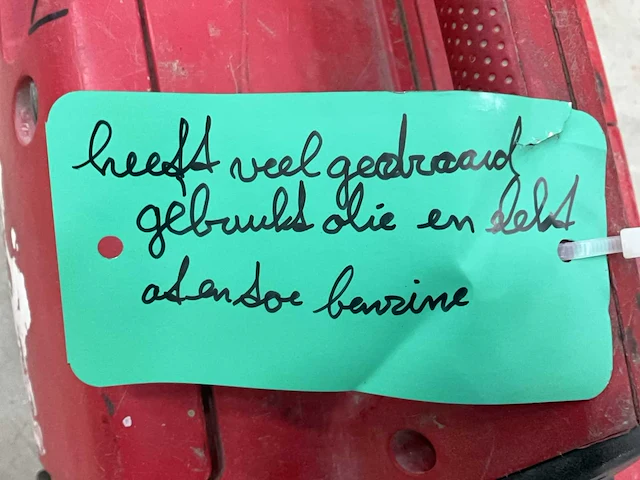 heeft veel gedraaid
gebruikt olie en lekt
af en toe benzine